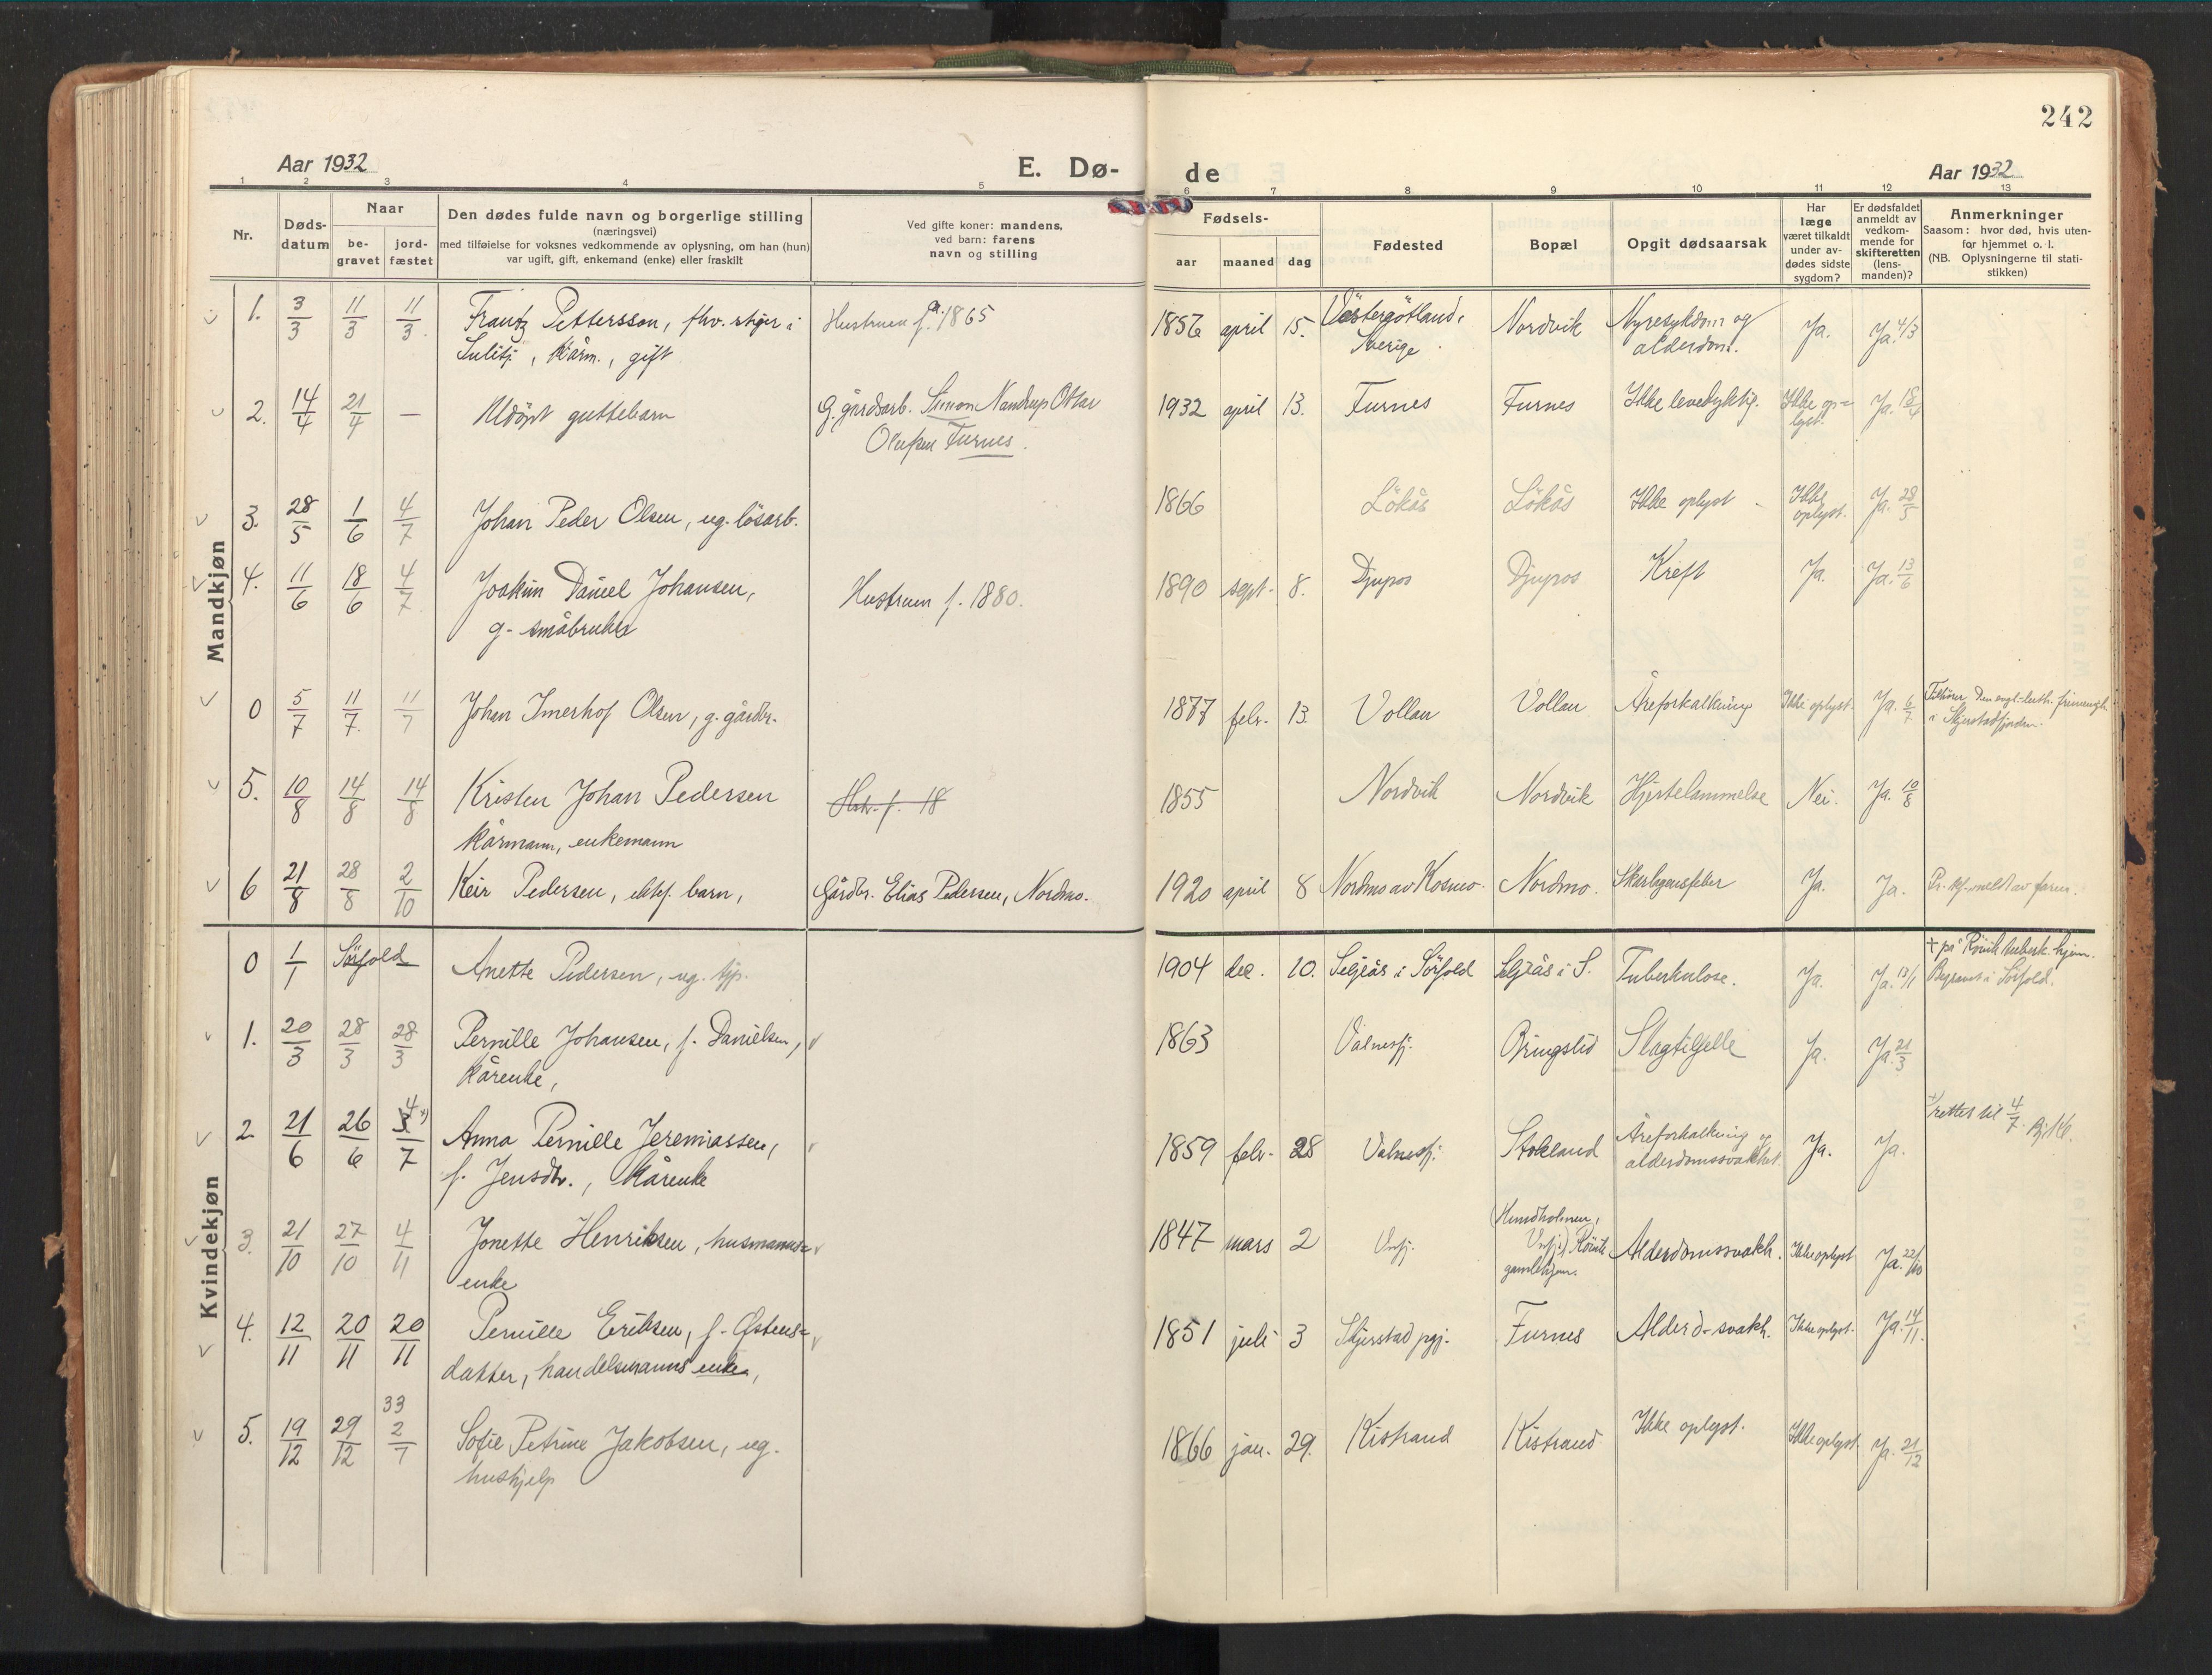 242
Aar 1932
E. Dø-
de
Aar 1932
1 2 3 4 5 6 7 8 9 10 11 12 13
Nr.
Døds-
datum
Naar
be-
gravet
jord-
fæstet
Den dødes fulde navn og borgerlige stilling
(næringsvei)
med tilføielse for voksnes vedkommende av oplysning, om han (hun)
var ugift, gift, enkemand (enke) eller fraskilt
Ved gifte koner: mandens,
ved barn: farens
navn og stilling
Fødsels-
aar maaned dag
Fødested
Bopæl
Opgit dødsaarsak
Har
læge
været tilkaldt
under av-
dødes sidste
sygdom?
Er dødsfaldet
anmeldt av
vedkom-
mende for
skifteretten
(lens-
manden)?
Anmerkninger
Saasom: hvor død, hvis uten-
for hjemmet o. l.
(NB. Oplysningerne til stati-
stikken)
Mandkjøn
1. 3/3 11/3 11/3 Frantz Pettersson, fhv. stiger i Hustruen f. 1865 1856 april 15. Västergötland, Nordvik Nyresykdom og Ja. Ja. 4/3
Sulitj., kårm., gift Sverige alderdom.
2. 14/4 21/4 — Udöpt guttebarn G. gårdsarb. Simon Nandrup Ottar 1932 april 13. Furnes Furnes Ikke levedyktig. Ikke op= Ja. 18/4
Olufsen Furnes. lyst.
3. 28/5 1/6 4/7 Johan Peder Olsen, ug. lösarb. 1866 Lökås Lökås Ikke oplyst Ikke Ja. 28/5
oplyst.
4. 11/6 18/6 4/7 Joakim Daniel Johansen, Hustruen f. 1880. 1890 sept. 8. Djupos Djupos Kreft Ja. Ja. 13/6
g. småbruker
0 5/7 11/7 11/7 Johan Imerhof Olsen, g. gårdbr. 1877 febr. 13. Vollan Vollan Åreforkalkning Ikke oplyst Ja. 6/7 Tilhörer Den evgl.-luth. frimengh.
i Skjerstadfjorden.
5. 10/8 14/8 14/8 Kristen Johan Pedersen Hstr. f. 18 1855 Nordvik Nordvik Hjertelammelse Nei. Ja. 10/8
kårmann, enkemann
6 21/8 28/8 2/10 Keir Pedersen, ektef. barn, Gårdbr. Elias Pedersen, Nordmo. 1920 april 8 Nordmo av Kosmo. Nordmo. Skarlagensfeber Ja. Ja. meldt av faren.
Kvindekjøn
0 1/1 Sörfold Anette Pedersen, ug. tjp. 1904 dec. 10. Seljeås i Sörfold Seljeås i S. Tuberkulose. Ja. Ja. 13/1 † på Rövik tuberk. hjem.
Begravet i Sörfold.
1. 20/3 28/3 28/3 Pernille Johansen, f. Danielsen, 1863 Valnesfj. Bringslid Slagtilfelle Ja. Ja. 21/3
kårenke,
2. 21/6 26/6 4/7 x) Anna Pernille Jeremiassen, 1859 febr. 28 Valnesfj. Stokland Åreforkalkning og Ja. Ja. x) rettet til 4/7.
f. Jensdtr., kårenke alderdomssvakhet.
3. 21/10 27/10 4/11 Jonette Henriksen, husmanns= 1847 mars 2 Vnfj. (Hundholmen, Vnfj.) Røvik gamlehjem. Alderdomssvakh. Ikke oplyst Ja. 22/10
enke
4. 12/11 20/11 20/11 Pernille Eriksen, f. Östens= 1851 juli 3 Skjerstad pgj. Furnes Alderd.svakh. Ikke oplyst. Ja. 14/11.
datter, handelsmanns enke,
33
5. 19/12 29/12 2/7 Sofie Petrine Jakobsen, ug. 1866 jan. 29. Kistrand Kistrand Ikke oplyst. Ikke oplyst. Ja. 21/12
hushjelp